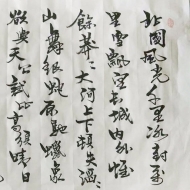 北國風光千里冰封萬
里雪飄望長城内外惟
餘莽々大河上下頓失滔々
山舞銀蛇原馳蠟象
欲與天公試比高須晴日